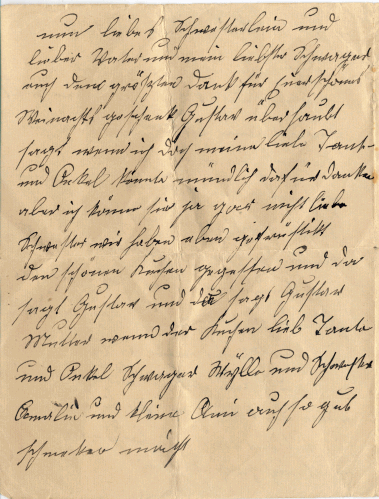 nun liebes Schwesterlein und
lieber Vater und mein liebster Schwager
auch den grösten Dank für euer schönes
Weinachts geschenk Gustav überhaubt
sagt wenn ich doch meine liebe Tante
und Onkel könnte mündlich dafür danken
aber ich könne sie ja gar nicht liebe
Schwester wir haben eben gefrüstikt
den schönen Kuchen gegessen und da
sagt Gustav und da sagt Gustav
Mutter wenn der Kuchen lieb Tante
und Onkel Schwager Wylle und Schwester
Amalia und kleine Ani auch so gut
schmeken möcht